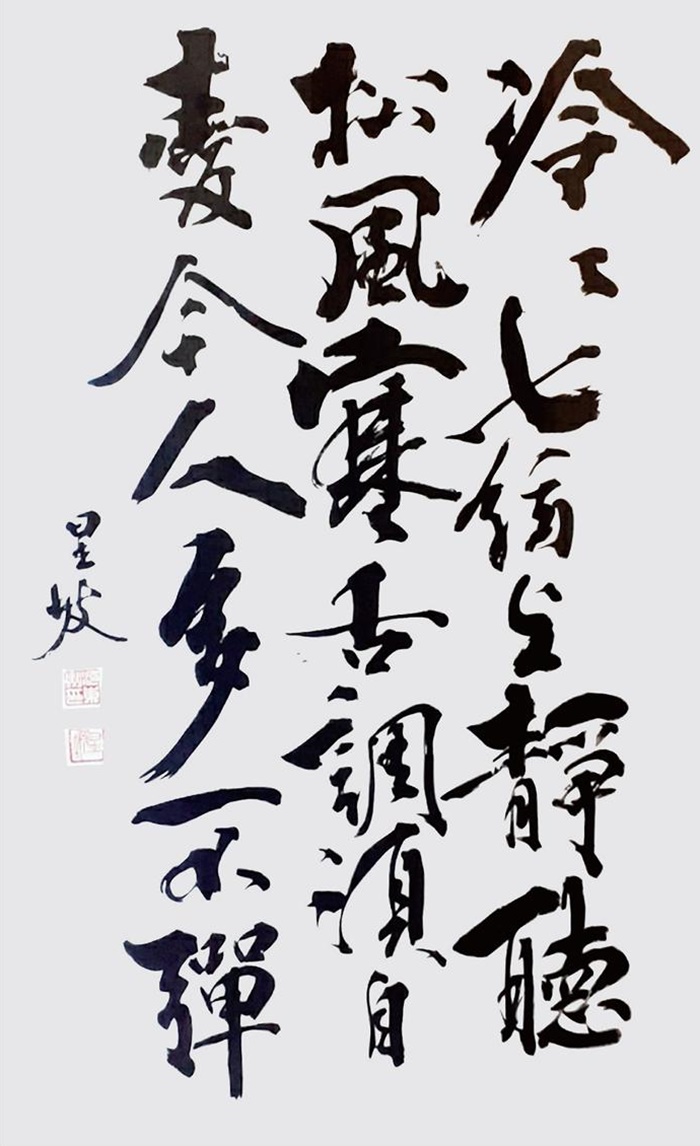 泠々七絃上靜聽
松風寒古調須自
愛令人多不彈
星坡